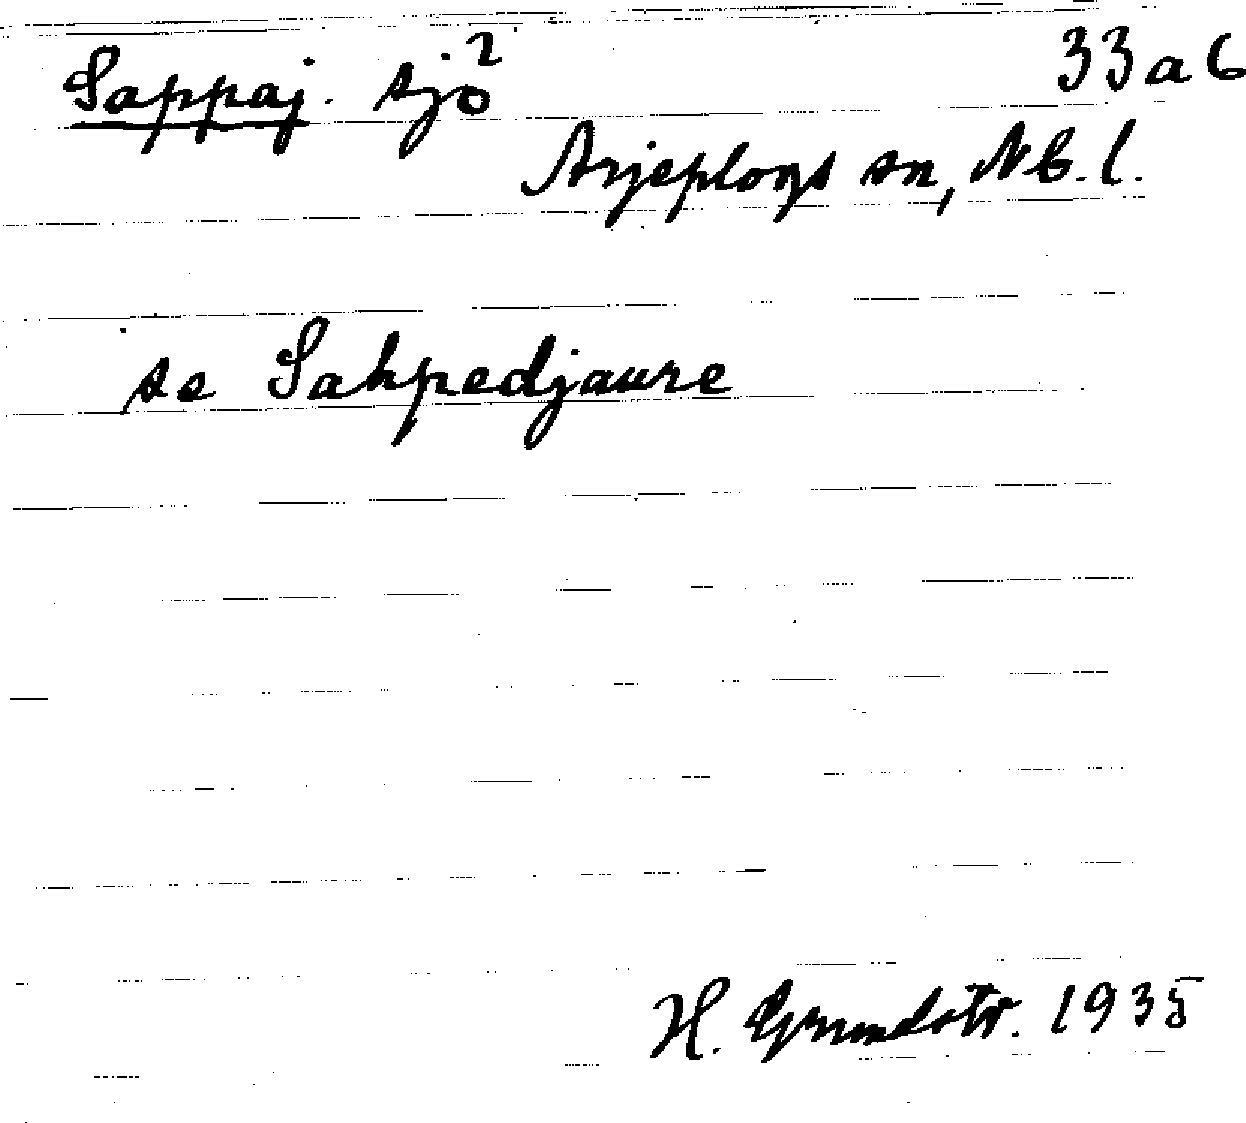 Sappaj. sjö² 33a6
Arjeplogs sn, Nb. l.
se Sahpedjaure
H. Grundstr. 1935